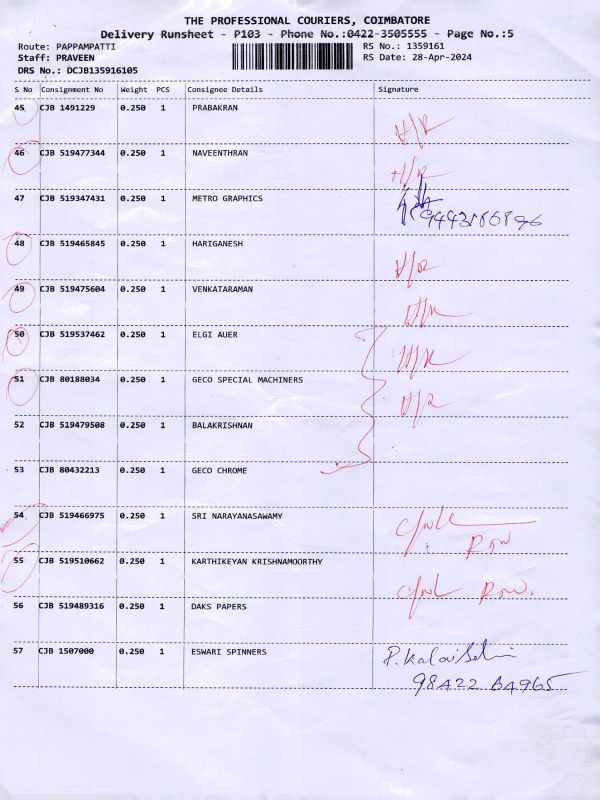 THE PROFESSIONAL COURIERS, COIMBATORE
Delivery Runsheet - P103 - Phone No.:0422-3505555 - Page No.:5
Route: PAPPAMPATTI RS No.: 1359161
Staff: PRAVEEN RS Date: 28-Apr-2024
DRS No.: DCJB135916105
S No Consignment No Weight PCS Consignee Details Signature
45 CJB 1491229 0.250 1 PRABAKRAN
46 CJB 519477344 0.250 1 NAVEENTHRAN
47 CJB 519347431 0.250 1 METRO GRAPHICS
48 CJB 519465845 0.250 1 HARIGANESH
49 CJB 519475604 0.250 1 VENKATARAMAN
50 CJB 519537462 0.250 1 ELGI AUER
51 CJB 80188034 0.250 1 GECO SPECIAL MACHINERS
52 CJB 519479508 0.250 1 BALAKRISHNAN
53 CJB 80432213 0.250 1 GECO CHROME
54 CJB 519466975 0.250 1 SRI NARAYANASAWAMY
55 CJB 519510662 0.250 1 KARTHIKEYAN KRISHNAMOORTHY
56 CJB 519489316 0.250 1 DAKS PAPERS
57 CJB 1507000 0.250 1 ESWARI SPINNERS P.KalaiSelvi
98422 64965